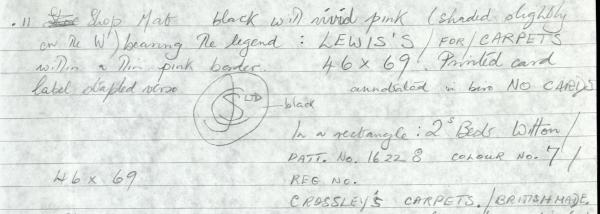 .11 Shop Mat black with vivid pink (shaded slightly
on the W') bearing the legend : LEWIS'S / FOR / CARPETS
within a thin pink border. 46 x 69. Printed card
label stapled verso annotated in biro NO CARDS
LTD
black
In a rectangle : 2s Beds Wilton /
PATT. No. 16228 COLOUR No. 7 /
46 x 69 REG No.
CROSSLEY'S CARPETS. / BRITISH MADE.